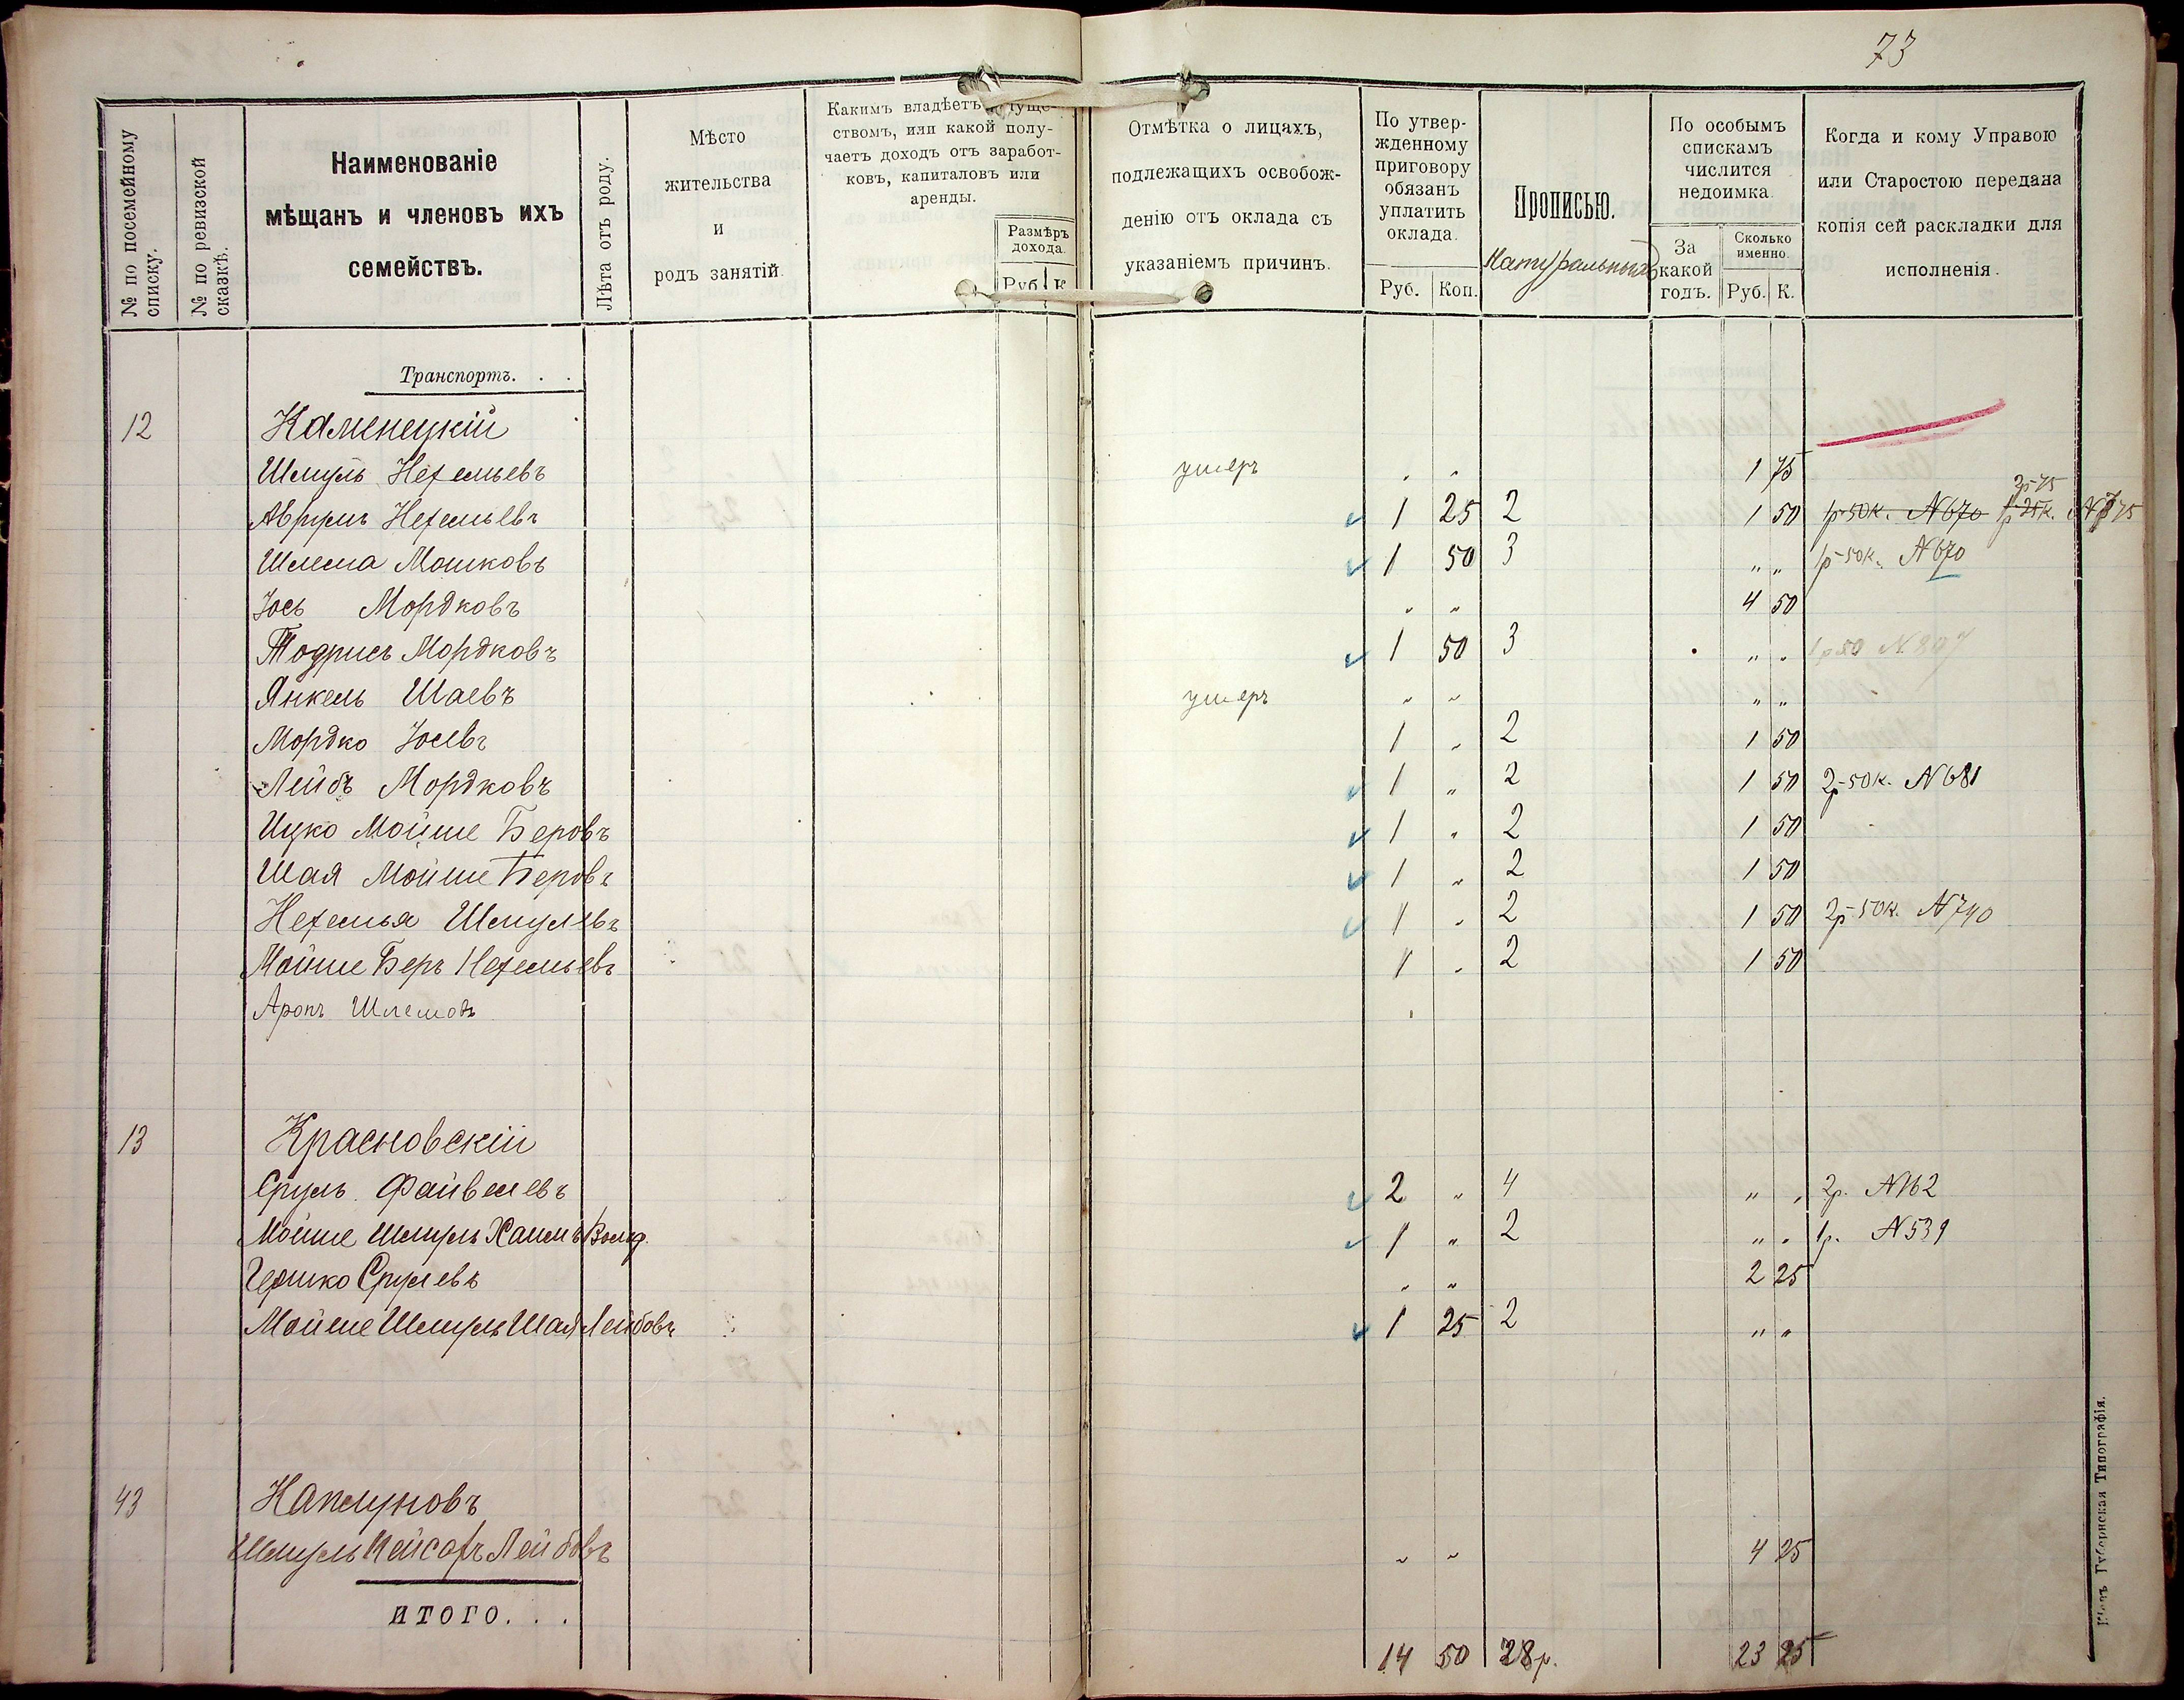 73
№ по посемейному списку.
№ по ревизской сказкѣ.
Наименованіе
мѣщанъ и членовъ ихъ
семействъ.
Лѣта отъ роду.
Мѣсто
жительства
и
родъ занятій.
Какимъ владѣетъ
ствомъ, или какой полу-
чаетъ доходъ отъ заработ-
ковъ, капиталовъ или
аренды.
Размѣръ
дохода.
Руб. К.
Отмѣтка о лицахъ,
подлежащихъ освобож-
денію отъ оклада съ
указаніемъ причинъ.
По утвер-
жденному
приговору
обязанъ
уплатить
оклада.
Руб. Коп.
Прописью.
Натуральныхъ
По особымъ
спискамъ
числится
недоимка.
За
какой
годъ.
Сколько
именно.
Руб. К.
Когда и кому Управою
или Старостою передана
копія сей раскладки для
исполненія.
Транспортъ. . .
12 Каменецкій
Шмуль Нехемьевъ умеръ " " 1 75
Аврумъ Нехемьевъ 1 25 2 1 50 1р 50к. N 670 1р 25к. 2р 75 N 775
Шлема Мошковъ 1 50 3 " " 1р 50к. N 670
Іось Мордковъ " " 4 50
Тодрисъ Мордковъ 1 50 3 " " 1р 50 N 807
Янкель Шаевъ умеръ " " " "
Мордко Іосевъ 1 " 2 1 50
Лейбъ Мордковъ 1 " 2 1 50 2р 50к. N 681
Ицко Мойше Беровъ 1 " 2 1 50
Шая Мойше Беровъ 1 " 2 1 50
Нехемья Шмулевъ 1 " 2 1 50 2р 50к. N 740
Мойше Беръ Нехемьевъ 1 " 2 1 50
Аронъ Шлемовъ
13 Красновскій
Сруль Файвелевъ 2 " 4 " " 2р. N 162
Мойше Шмуль Хаимъ Вольф. 1 " 2 " " 1р. N 539
Гершко Срулевъ " " 2 25
Мойше Шмуль Шая Лейбовъ 1 25 2 " "
43 Каплуновъ
Шмуль Лейбовъ " " 4 25
ИТОГО. . .
14 50 28р. 23 25
Кіевъ Губернская Типографія.